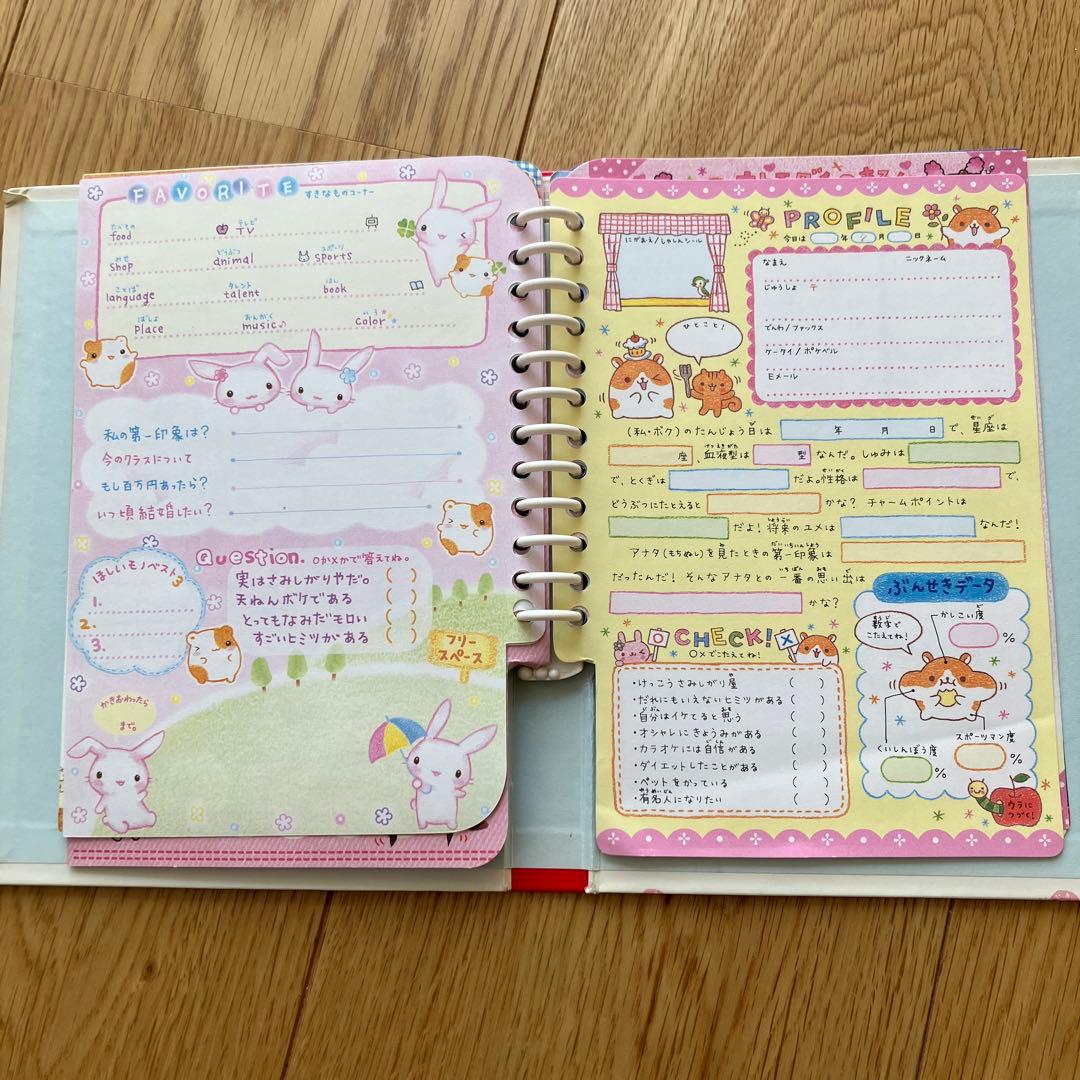 FAVORITE すきなものコーナー
たべもの テレビ
food. TV
みせ どうぶつ スポーツ
shop animal sports
ことば タレント ほん
language talent book
ばしょ おんがく いろ
place music♪ color
私の第一印象は?
今のクラスについて
もし百万円あったら?
いつ頃結婚したい?
ほしいモノベスト3
1.
2.
3.
Question. ○か×かで答えてね。
実はさみしがりやだ。( )
天ねんボケである ( )
とってもなみだモロい ( )
すごいヒミツがある ( )
フリースペース
かきおわったら
まで。
PROFILE
今日は 年 月 日
にがおえ/しゃしんシール
ひとこと!
なまえ ニックネーム
じゅうしょ 〒
でんわ/ファックス
ケータイ/ポケベル
Eメール
(私・ボク)のたんじょう日は 年 月 日 で、星座は
せいざ
座、血液型は 型 なんだ。しゅみは
けつえきがた
で、とくぎは だよ。性格は で、
せいかく
どうぶつにたとえると かな? チャームポイントは
だよ!将来のユメは なんだ!
しょうらい
アナタ(もちぬし)を見たときの第一印象は
み だいいちいんしょう
だったんだ! そんなアナタとの一番の思い出は
いちばん おも で
かな?
CHECK!
○×でこたえてね!
・けっこうさみしがり屋 ( )
・だれにもいえないヒミツがある ( )
・自分はイケてると思う ( )
じぶん おも
・オシャレにきょうみがある ( )
・カラオケには自信がある ( )
・ダイエットしたことがある ( )
・ペットをかっている ( )
・有名人になりたい ( )
ゆうめいじん
ぶんせきデータ
数字でこたえてね!
すうじ
かしこい度
%
スポーツマン度
%
くいしんぼう度
%
ウラにつづく!